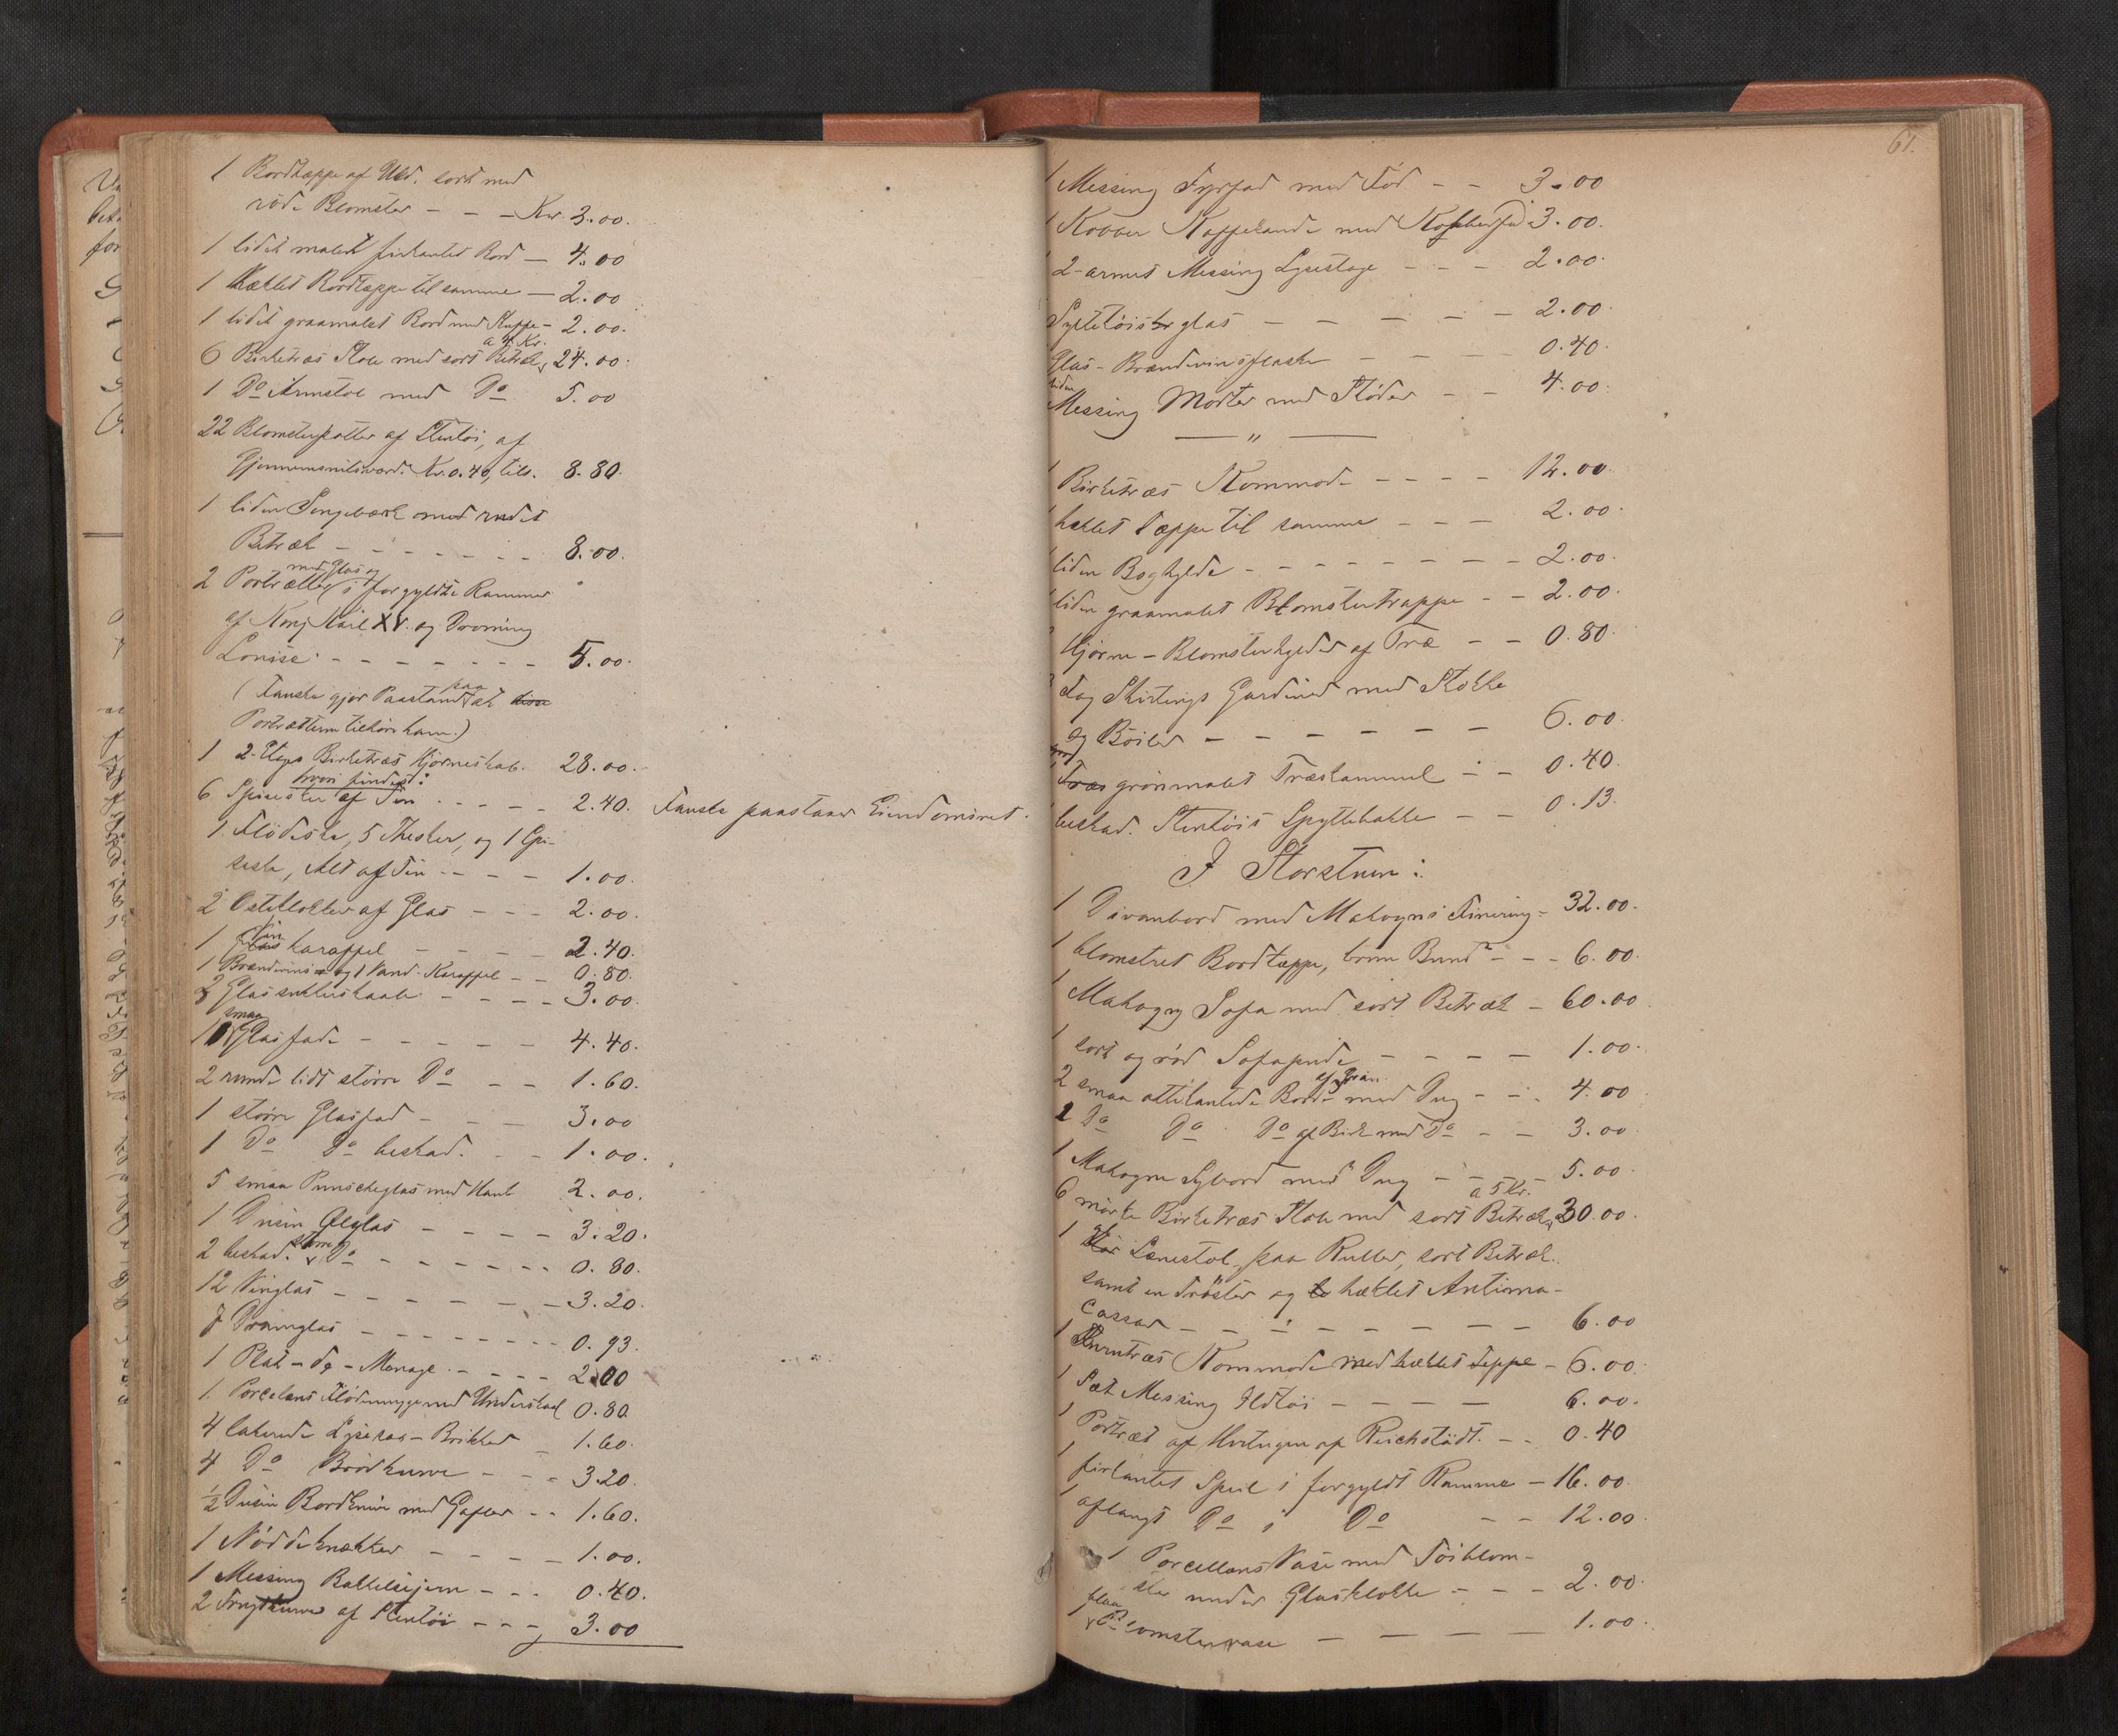 1 Bordtæppe af Uld. sort med
røde Blomster - - - Kr. 3.00.
1 lidet malet firkantet Bord - 4.00
1 Hæklet Bordtæppe til samme - 2.00
1 lidet graamalet Bord med Skuffe - 2.00.
a 4 Kr.
6 Birketræs Stole med sort Betræk, 24.00.
1 Do Armstol med Do 5.00
22 Blomsterpotter af Stentøi, af
Gjennemsnitsværd. Kr. 0.40, tils. 8.80.
1 liden Sengebænk med rødt
Betræk - - - - - - 8.00.
med Glas og
2 Portrætter i forgyldte Rammer
af Konj Karl XV. og Dronning
Louise - - - - - - - 5.00.
paa
(Fauske gjør Paastand at disse
Portrætterne tilhøre ham.)
1 2-Etages Birketræs Hjørneskab. 28.00.
hvori findes:
6 Spiseskeer af Tin - - - - - 2.40. Fauske paastaaer Eiendomsret.
1 Flødeske, 5 Theskeer, og 1 Spi-
seske, Alt af Tin - - - - 1.00.
2 Osteklokker af Glas - - - 2.00.
Vin
1 Glas karaffel - - - - 2.40.
1 Brændevins- og 1 Vand-Karaffel - - 0.80.
2 Glassukkerskaale - - - - 3.00.
smaa
11 Glasfade - - - - - 4.40.
2 runde lidt større Do - - 1.60.
1 større Glasfad - - - 3.00
1 Do Do beskad. - - 1.00.
5 smaa Punscheglas med Hank 2.00.
1 Dusin Ølglas - - - - 3.20.
større
2 beskad. Do - - - - - - - 0.80.
12 Vinglas - - - - - - - 3.20.
7 Dramglas - - - - - - - - 0.93.
1 Plat-de-Menage - - - - 2.00
1 Porcelæns Flødemugge med Underskaal 0.80
4 lakerede Lysesax-Brikker - 1.60.
4 Do Brødkurve - - - 3.20.
½ Dusin Bordknive med Gafler - - 1.60.
1 Nøddeknækker - - - - - 1.00.
1 Messing Bakkelsejern - - - 0.40.
2 Frugtkurve af Stentøi - - - 3.00
61.
1 Messing Fyrfad med Fod - - 3.00
1 Kobber Kaffekande med Kobberfad 3.00.
1 2-armet Messing Lysestage - - - 2.00.
Syltetøis glas - - - - - 2.00.
Glas-Brændevinsflaske - - - - 0.40.
liden
Messing Morter med Støder - - 4.00.
— " —
1 Birketræs Kommode - - - - 12.00.
1 hæklet Tæppe til samme - - - 2.00.
1 liden Boghylde - - - - - - - - 2.00.
1 liden graamalet Blomstertrappe - - 2.00.
Hjørne-Blomsterhylder af Træ - - 0.80.
3 Fag Shirtings Gardiner med Stokke
og Bøiler - - - - - - 6.00.
1 Træ grønmalet Træskammel - - 0.40.
1 beskad. Stentøis Spyttebakke - - 0.13.
I Storstuen:
1 Divanbord med Mahogni Finering - 32.00.
1 blomstret Bordtæppe, brun Bund - - - 6.00.
1 Mahogny Sofa med sort Betræk - 60.00.
1 sort og rød Sofapude - - - - 1.00.
af Gran.
2 smaa ottekantede Borde med Dug - - - 4.00
1 Do Do Do af Birk med Do - - 3.00.
1 Mahogni Sybord med Dug - - - - 5.00.
a 5 Kr.
6 mørke Birketræs Stole med sort Betræk, 30.00.
1 stor Lænestol paa Ruller, sort Betræk.
samt en Trøster og hæklet Antima-
cassar - - - - - - - - 6.00
1 Furutræs Kommode med hæklet Teppe - 6.00.
1 Sæt Messing Ildtøi - - - - 6.00.
1 Portræt af Hertugen af Reichstädt. - - 0.40
1 firkantet Speil i forgyldt Ramme - 16.00.
1 aflangt Do i Do - - 12.00.
1 Porcellæns Vase med Tøiblom-
ster under Glasklokke - - - 2.00.
blaa
1 Blomstervase - - - - - 1.00.